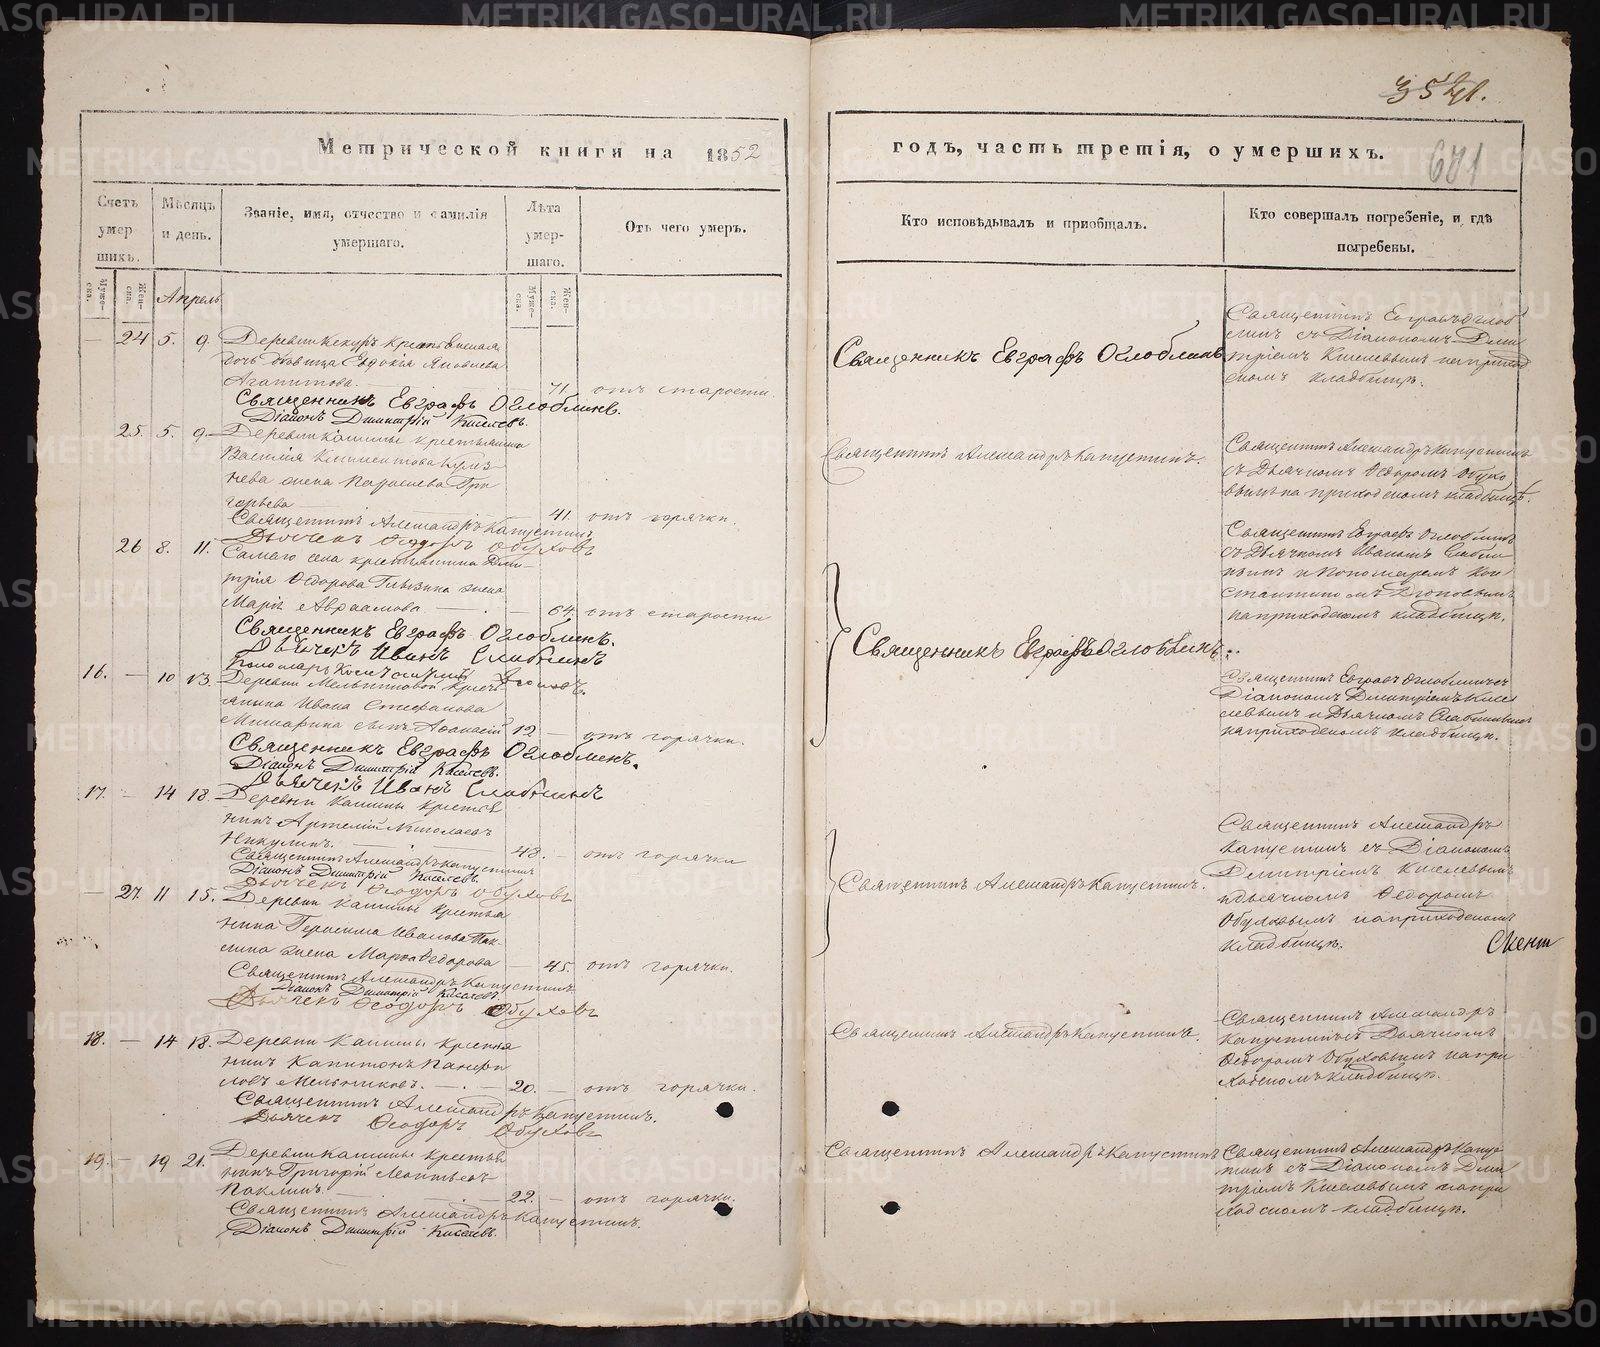 352
Метрической книги на 1852
годъ, часть третія, о умершихъ.
Счетъ умершихъ.
Мѣсяцъ и день.
Званіе, имя, отчество и фамилія умершаго.
Лѣта умершаго.
Отъ чего умеръ.
Кто исповѣдывалъ и приобщалъ.
Кто совершалъ погребеніе, и гдѣ погребены.
Апрель
— 24 5. 9.
дочь девица Евдокія Яковлева
Агапитова. — 71. отъ старости.
Священникъ Евграфъ Оглоблинъ.
Діаконъ Димитрій Киселевъ.
Священникъ Евграфъ Оглоблинъ
Священникъ Евграфъ Оглоб
линъ съ Діакономъ Дми
тріемъ Киселевымъ на приход
скомъ кладбищѣ.
25. 5. 9. Деревни Кашины крестьянина
Василія Климентова
жена Параскева Гри
горьева — 41. отъ горячки.
Священникъ Александръ Капустинъ
Дьячекъ Ѳеодоръ Обуховъ
Священникъ Александръ Капустинъ.
Священникъ Александръ Капустинъ
съ Дьячкомъ Ѳедоромъ Обухо
вымъ на приходскомъ кладбищѣ.
26 8. 11. Самаго села крестьянина Дми-
трія Ѳедорова жена
Марія Авраамова — 64. отъ старости
Священникъ Евграфъ Оглоблинъ.
Дьячекъ Иванъ
Священникъ Евграфъ Оглоблинъ
Священникъ Евграфъ Оглоблинъ
съ Дьячкомъ Иваномъ
и Пономаремъ Кон
стантиномъ
на приходскомъ кладбищѣ.
16. — 10 13. Деревни
Ивана Стефанова
сынъ Афанасій 12 — отъ горячки.
Священникъ Евграфъ Оглоблинъ.
Діаконъ Димитрій Киселевъ.
Дьячекъ Иванъ
Священникъ Евграфъ Оглоблинъ съ
Діакономъ Димитріемъ Кисе
левымъ и Дьячкомъ
на приходскомъ кладбищѣ.
17. — 14 18. Деревни Кашины крестья
нинъ Артемій Николаевъ
Никулинъ. — 43. — отъ горячки
Священникъ Александръ Капустинъ
Діаконъ Димитрій Киселевъ.
Дьячекъ Ѳеодоръ Обуховъ
Священникъ Александръ Капустинъ.
Священникъ Александръ
Капустинъ съ Діакономъ
Димитріемъ Киселевымъ
и дьячкомъ Ѳедоромъ
Обуховымъ на приходскомъ
кладбищѣ.
— 27. 11 15. Деревни Кашины крестья
нина Герасима Иванова Пак-
лина жена Марѳа Ѳедорова — 45. отъ горячки.
Священникъ Александръ Капустинъ
Діаконъ Димитрій Киселевъ.
Дьячекъ Ѳеодоръ Обуховъ
18. — 14 18. Деревни Кашины крестья
нинъ Капитонъ Панфи
ловъ Мельниковъ. — 20. — отъ горячки.
Священникъ Александръ Капустинъ.
Дьячекъ Ѳеодоръ Обуховъ
Священникъ Александръ Капустинъ.
Священникъ Александръ
Капустинъ съ Дьячкомъ
Ѳедоромъ Обуховымъ на при
ходскомъ кладбищѣ.
19. — 19 21. Деревни Кашины крестья
нинъ Григорій Леонтьевъ
Паклинъ. — 22. — отъ горячки.
Священникъ Александръ Капустинъ.
Діаконъ Димитрій Киселевъ.
Священникъ Александръ Капустинъ
Священникъ Александръ Капус
тинъ съ Діакономъ Дми
тріемъ Киселевымъ на при
ходскомъ кладбищѣ.
METRIKI.GASO-URAL.RU